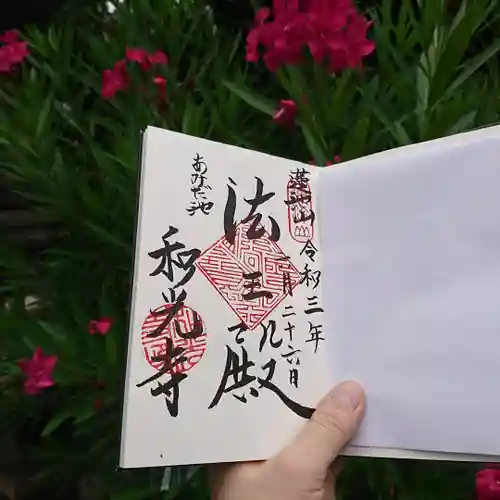 蓮池山
令和三年
一月二十六日
法王殿
あみだ池
和光寺